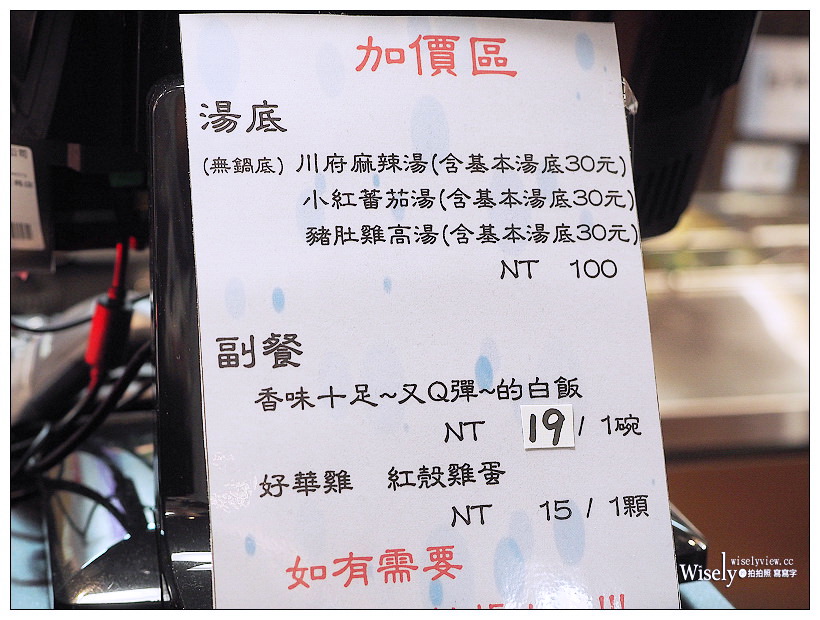 加價區
湯底
(無鍋底) 川府麻辣湯(含基本湯底30元)
小紅蕃茄湯(含基本湯底30元)
豬肚雞高湯(含基本湯底30元)
NT 100
副餐
香味十足~又Q彈~的白飯
NT 19 / 1碗
好華雞 紅殼雞蛋
NT 15 / 1顆
如有需要
!!!
公司
wiselyview.cc
Wisely 拍拍照 寫寫字